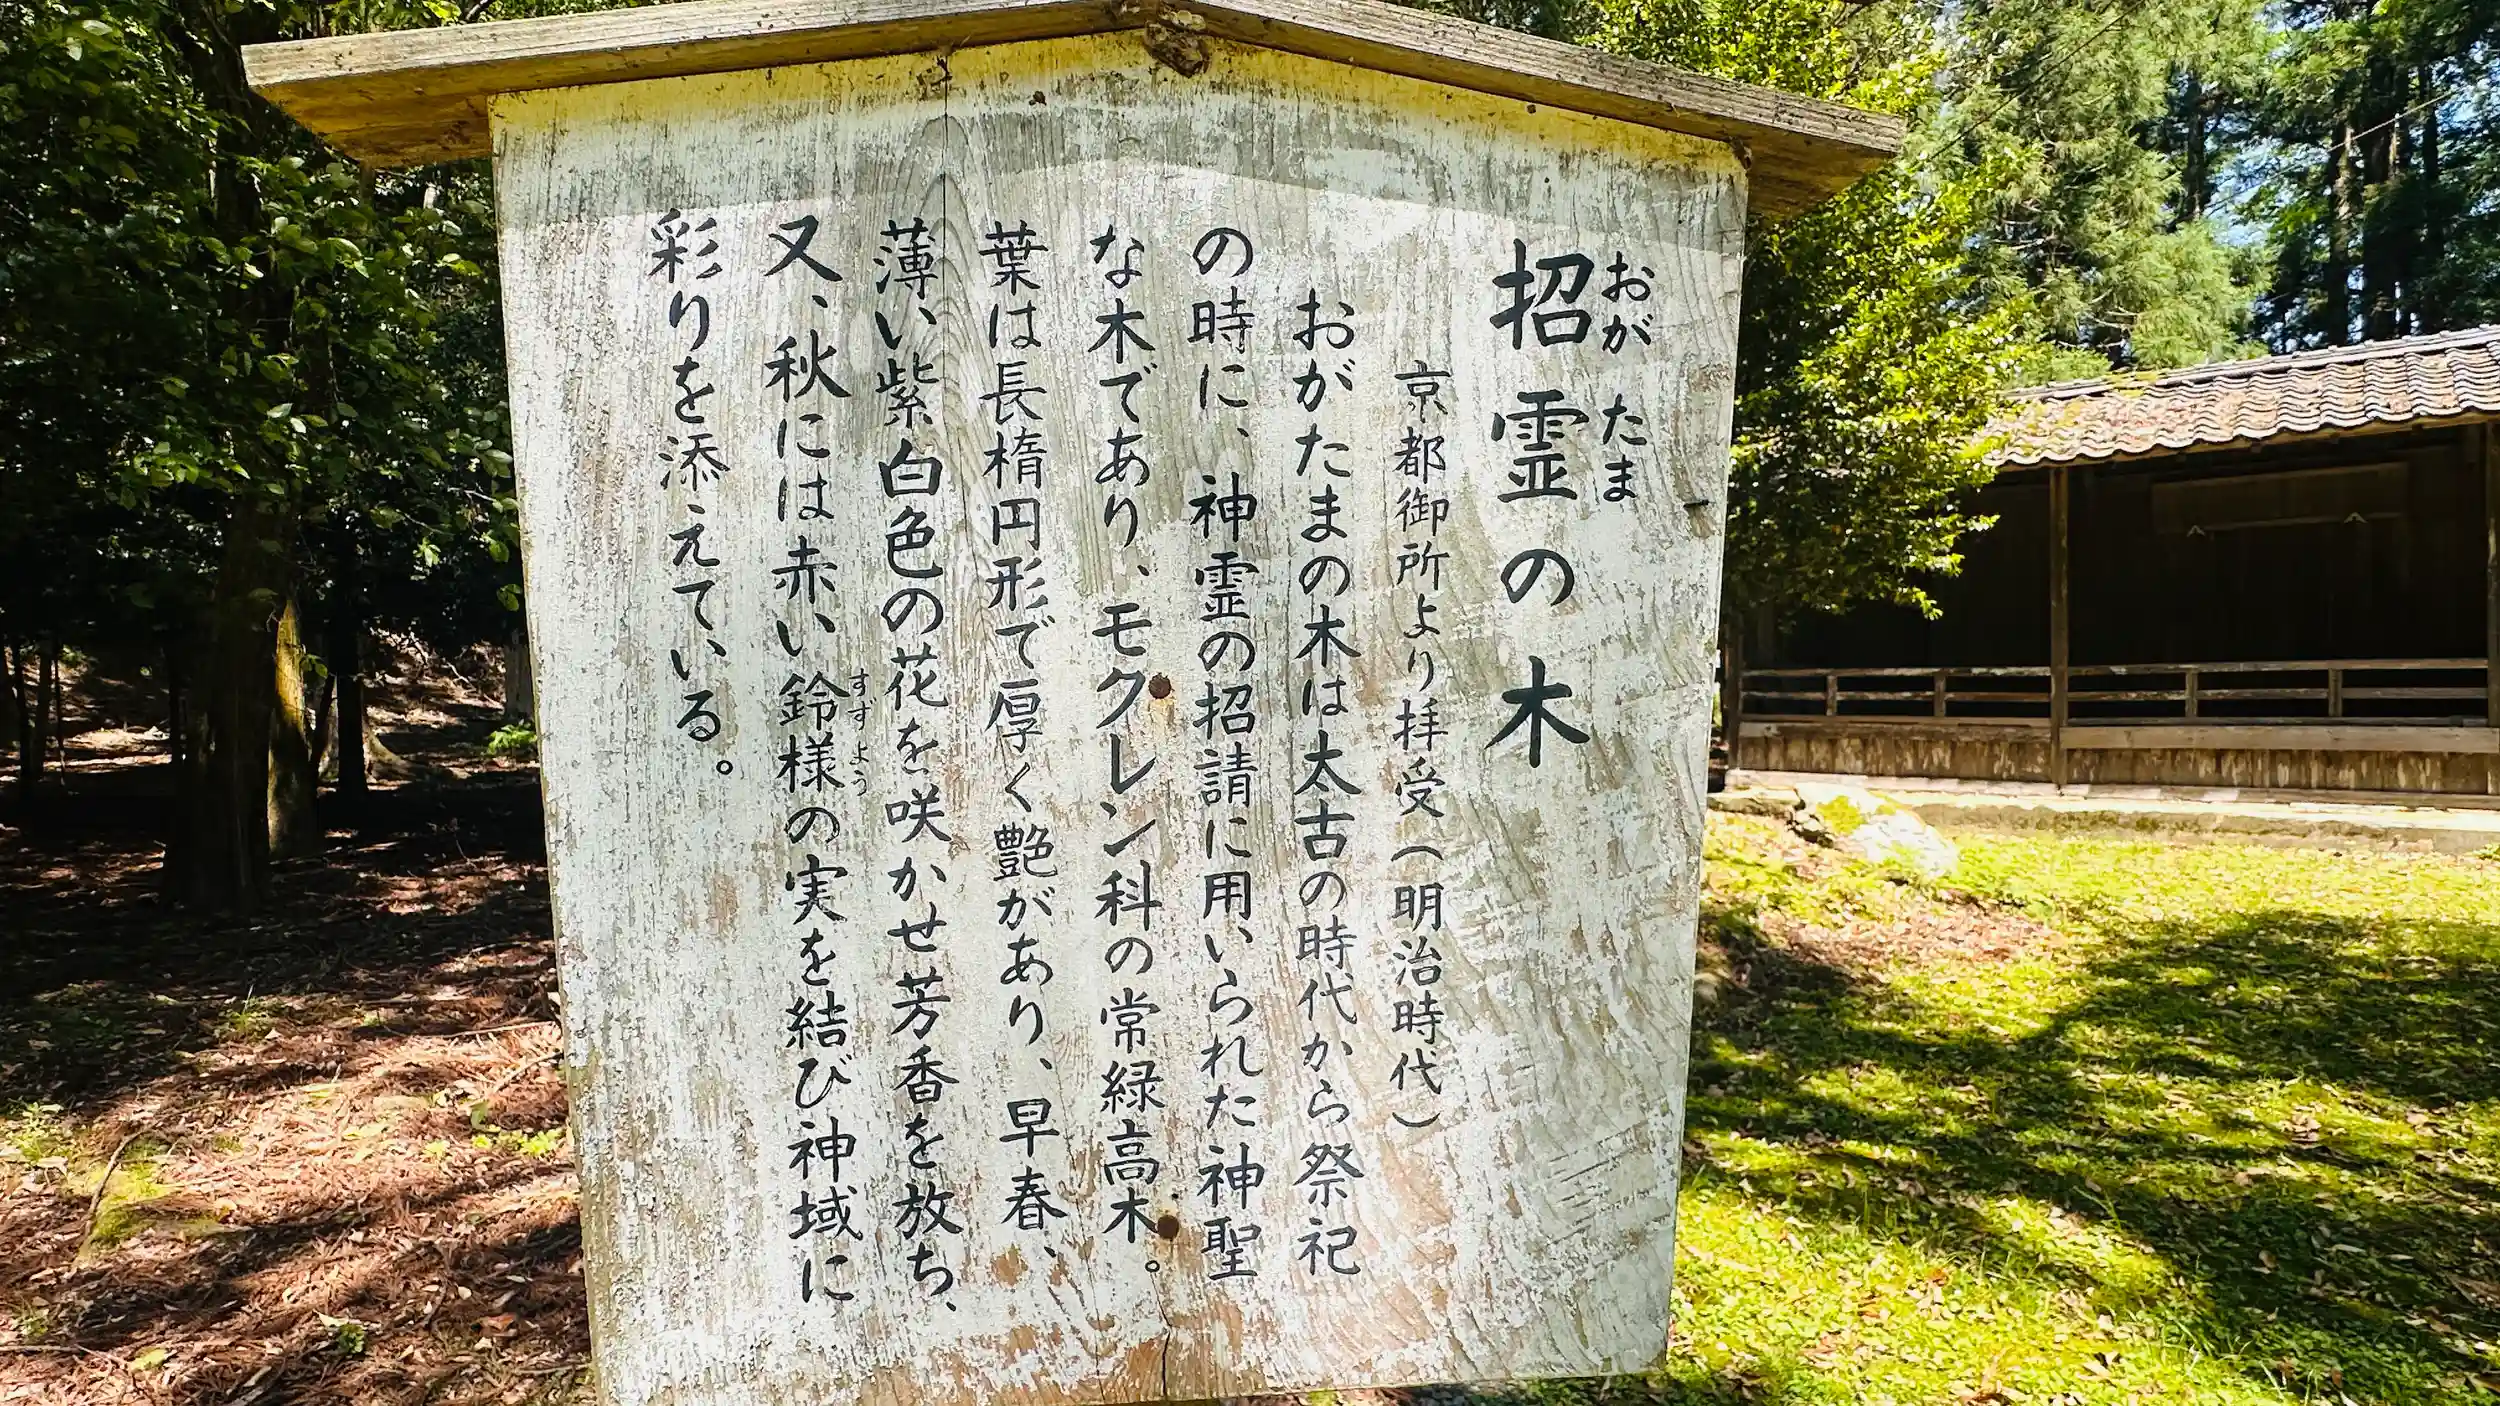 おが たま
招霊の木
京都御所より拝受(明治時代)
おがたまの木は太古の時代から祭祀
の時に、神霊の招請に用いられた神聖
な木であり、モクレン科の常緑高木。
葉は長楕円形で厚く艶があり、早春、
薄い紫白色の花を咲かせ芳香を放ち、
すずよう
又、秋には赤い鈴様の実を結び神域に
彩りを添えている。